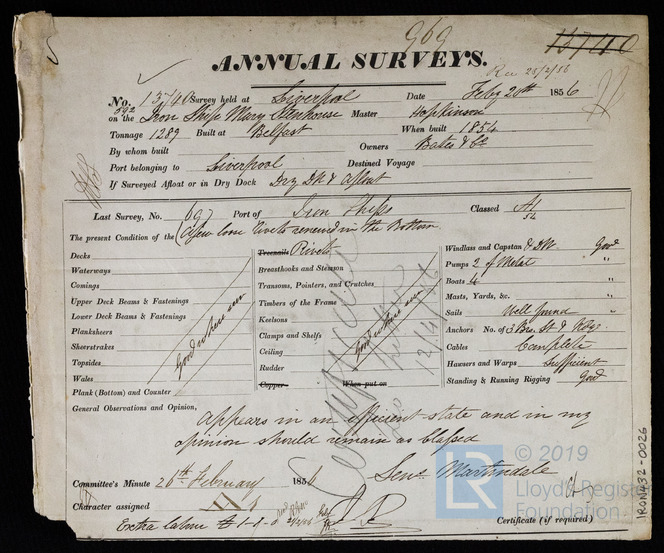 969
ANNUAL SURVEYS.
16740
Rec 25/2/56
No. 13740 Survey held at Liverpool Date Feby 20th 1856
592
on the Iron Ship Mary Stenhouse Master Hopkinson
Tonnage 1289 Built at Belfast When built 1854
By whom built Owners Bates & Co
Port belonging to Liverpool Destined Voyage
If Surveyed Afloat or in Dry Dock Dry Dk & afloat
Last Survey, No. 697 Port of Iron Ships Classed A1
54
The present Condition of the (A few loose rivets renewed in the Bottom
Decks
Waterways
Comings
Upper Deck Beams & Fastenings
Lower Deck Beams & Fastenings
Planksheers
Sheerstrakes
Topsides
Wales
Plank (Bottom) and Counter
Good where seen
Treenails Rivets
Breasthooks and Stemson
Transoms, Pointers, and Crutches
Timbers of the Frame
Keelsons
Clamps and Shelfs
Ceiling
Rudder
Copper When put on
Good where seen
12/4/56
Windlass and Capstan & DW. Good
Pumps 2 of Metal "
Boats 4 "
Masts, Yards, &c. "
Sails Well found
Anchors No. of 3 Brs. St & Kdgs
Cables Complete
Hawsers and Warps Sufficient
Standing & Running Rigging Good
General Observations and Opinion,
Appears in an efficient state and in my
opinion should remain as classed
Committee's Minute 26th February 1856
Martindale
Character assigned
Extra labour £1-0-0
Certificate (if required)
© 2019
LR
Lloyd's Register
Foundation
IRON432-0026